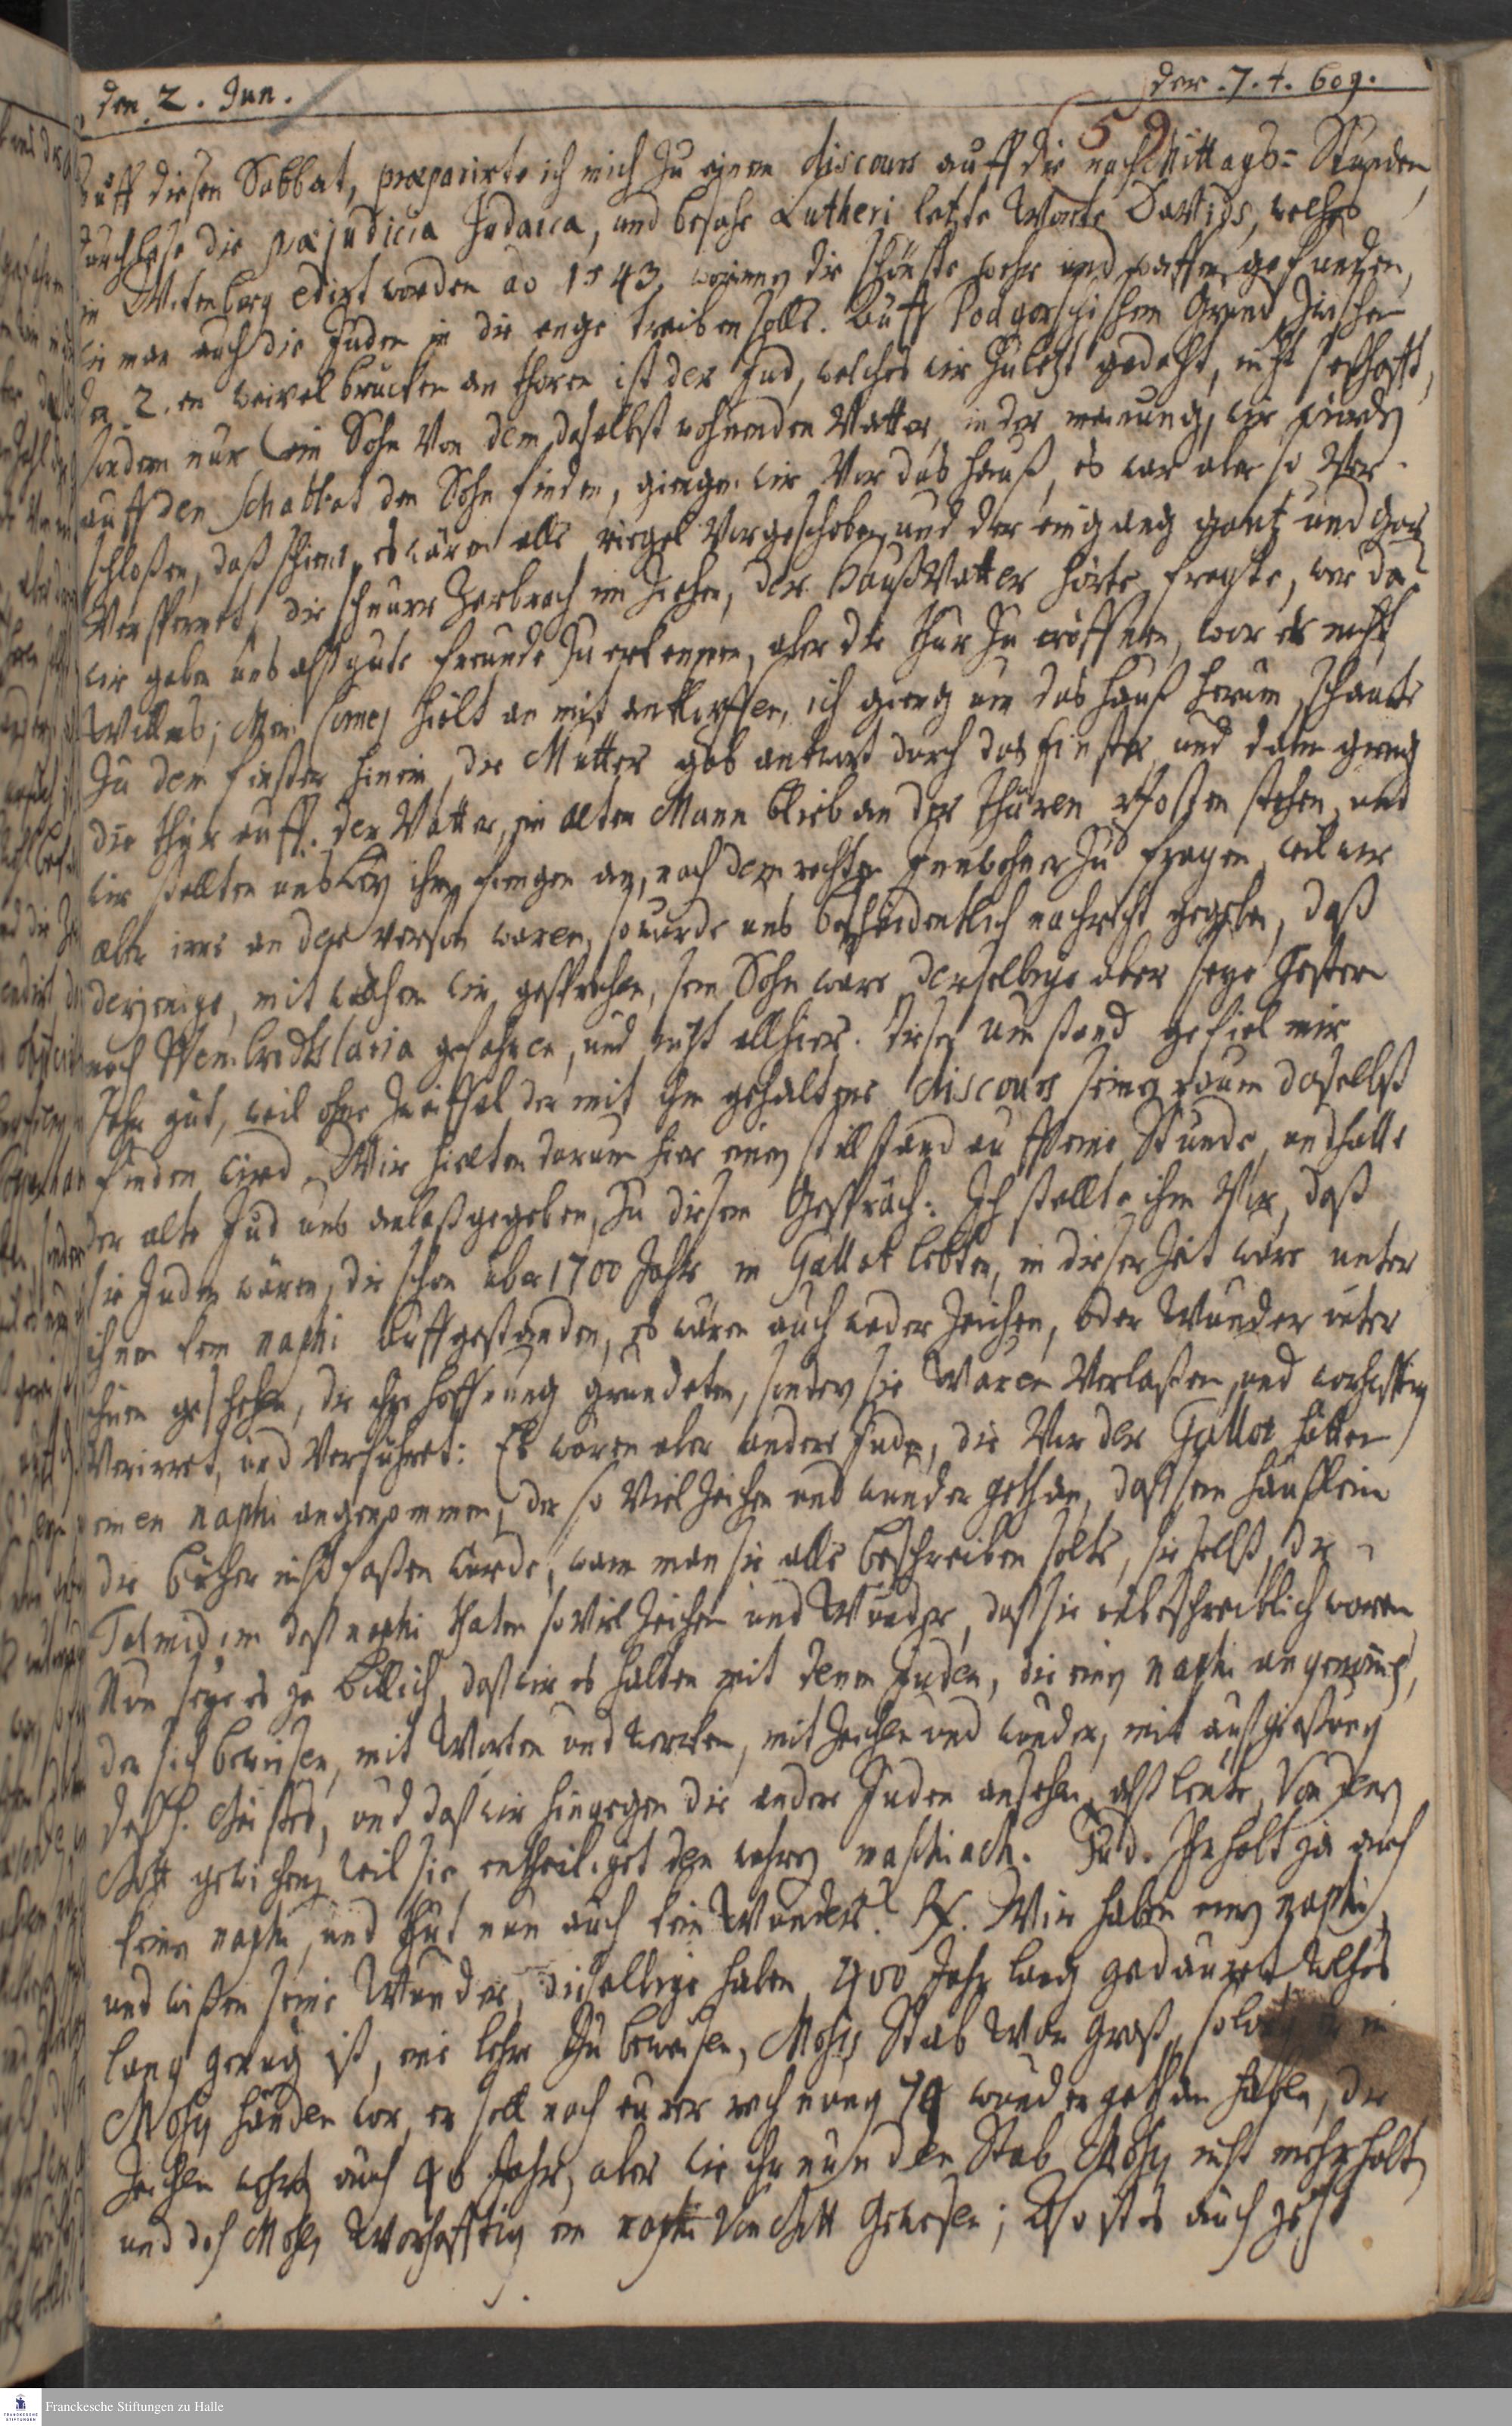 den 2. Jun.
der. 7. t. 609.
59
Auff diesen Sabbat, præparirte ich mich zu einem discours auff die nachMittags= Stunden,
durchlase die præjudicia Judaica, und besahe Lutheri letzte Worte Davids, welches
in Witenberg edirt worden ao 1543, worinnen die schönste wehr und waffen gefunden,
wie man auch die Juden in die enge treiben solle. Auff Podgorschischem Grund, zwischen
den 2.en weixel brucken an thoren ist der Jud, welches wir zuletzt gedacht, nicht seßhafft,
sondern nur ein Sohn von dem daselbst wohnenden Vatter, in der meinung, wir würden
auff den Schabbat den Sohn finden, giengen wir vor das hauß, es war aber so ver-
schloßen, daß schiene, es wären alle riegel vorgeschoben, und der eingang gantz und gar
versperret, die schnurr zerbrach im ziehen, der Haußvatter hörte, fragte, wer da?
wir gaben uns alß gute freunde zu erkennen, aber die thür zu eröffnen, war er nicht
Willens; Mein Comes hielt an mit anklopffen, ich gieng um das hauß herum, schaute
zu dem finster hinein, die Mutter gab antwort durch das finster, und dann gieng
die thür auff. der Vatter, ein alter Mann blieb an der thüren Pfosten stehen, und
wir stellten uns bey ihm, fiengen an, nach dem rechten Innwohner zu fragen, weil wir
aber irre an der person waren, so wurde uns bescheidentlich nachricht gegeben, daß
derjenige, mit welchem wir gesprochen, sein Sohn wäre, derselbige aber seye gestern
nach gefahren, und nicht allhier. dieser umstand gefiel mir
sehr gut, weil ohne zweiffel der mit ihm gehaltene discours seinen raum daselbst
finden wird. Wir hielten darum hier einen stillstand auff eine Stunde, und hatte
der alte Jud uns anlaß gegeben, zu diesem Gespräch: Ich stellte ihm vor, daß
sie Juden wären, die schon über 1700 Jahr in Gallot lebten, in dieser zeit wäre unter
ihnen kein naphi auffgestanden, es wären auch weder zeichen, oder Wunder unter
ihnen geschehen, die ihre hoffnung gründeten, sondern sie wären verlaßen, und warhafftig
verirret, und verführet: Es wären aber andere Juden, die vor der Gallot hätten
einen naphi angenommen, der so viel zeichen und wunder gethan, daß sein häufflein
die bücher nicht faßen würde, wann man sie alle beschreiben solte, sie selbst, die
Talmidim deß naphi thaten so viel zeichen und Wunder, daß sie unbeschreiblich waren.
Nun seye es ja billich, daß wir es halten mit denen Juden, die einen naphi angenommen,
der sich bewiesen, mit Worten und wercken, mit zeichen und wunder, mit außgießung
deß h. Geistes, und daß wir hingegen die andere Juden ansehen, alß leute, von denen
Gott gewichen, weil sie entheiliget den wahren maschiach. Jud. Ihr habt ja auch
keinen naphi, und thut nun auch kein Wunder? R. Wir haben einen naphi,
und wißen seine Wunder, dieselbige haben 400 Jahr lang gedauret, welches
lang genug ist, eine lehre zu beweisen, Mosis Stab war groß, so lang er in
Mosis händen war, er soll nach eurer rechnung 74 wunder gethan haben, die
zeichen wehrten auch 40 Jahr, aber wie ihr nun den Stab Mosis nicht mehr habt,
und doch Moses warhafftig ein naphi von Gott gewesen; also ist es auch jetzt
Franckesche Stiftungen zu Halle